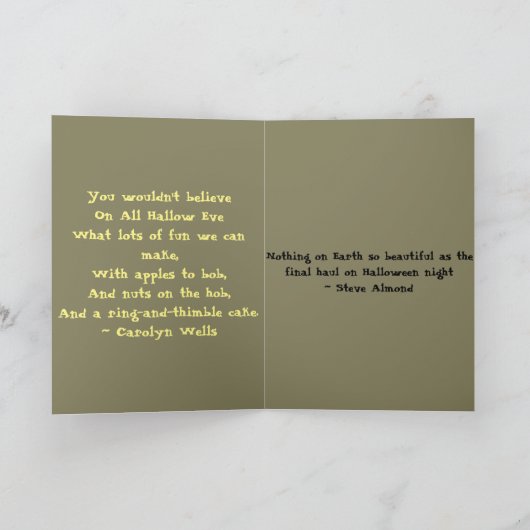 You wouldn't believe
On All Hallow Eve
What lots of fun we can
make,
With apples to bob,
And nuts on the hob,
And a ring-and-thimble cake.
~ Carolyn Wells
Nothing on Earth so beautiful as the
final haul on Halloween night
~ Steve Almond